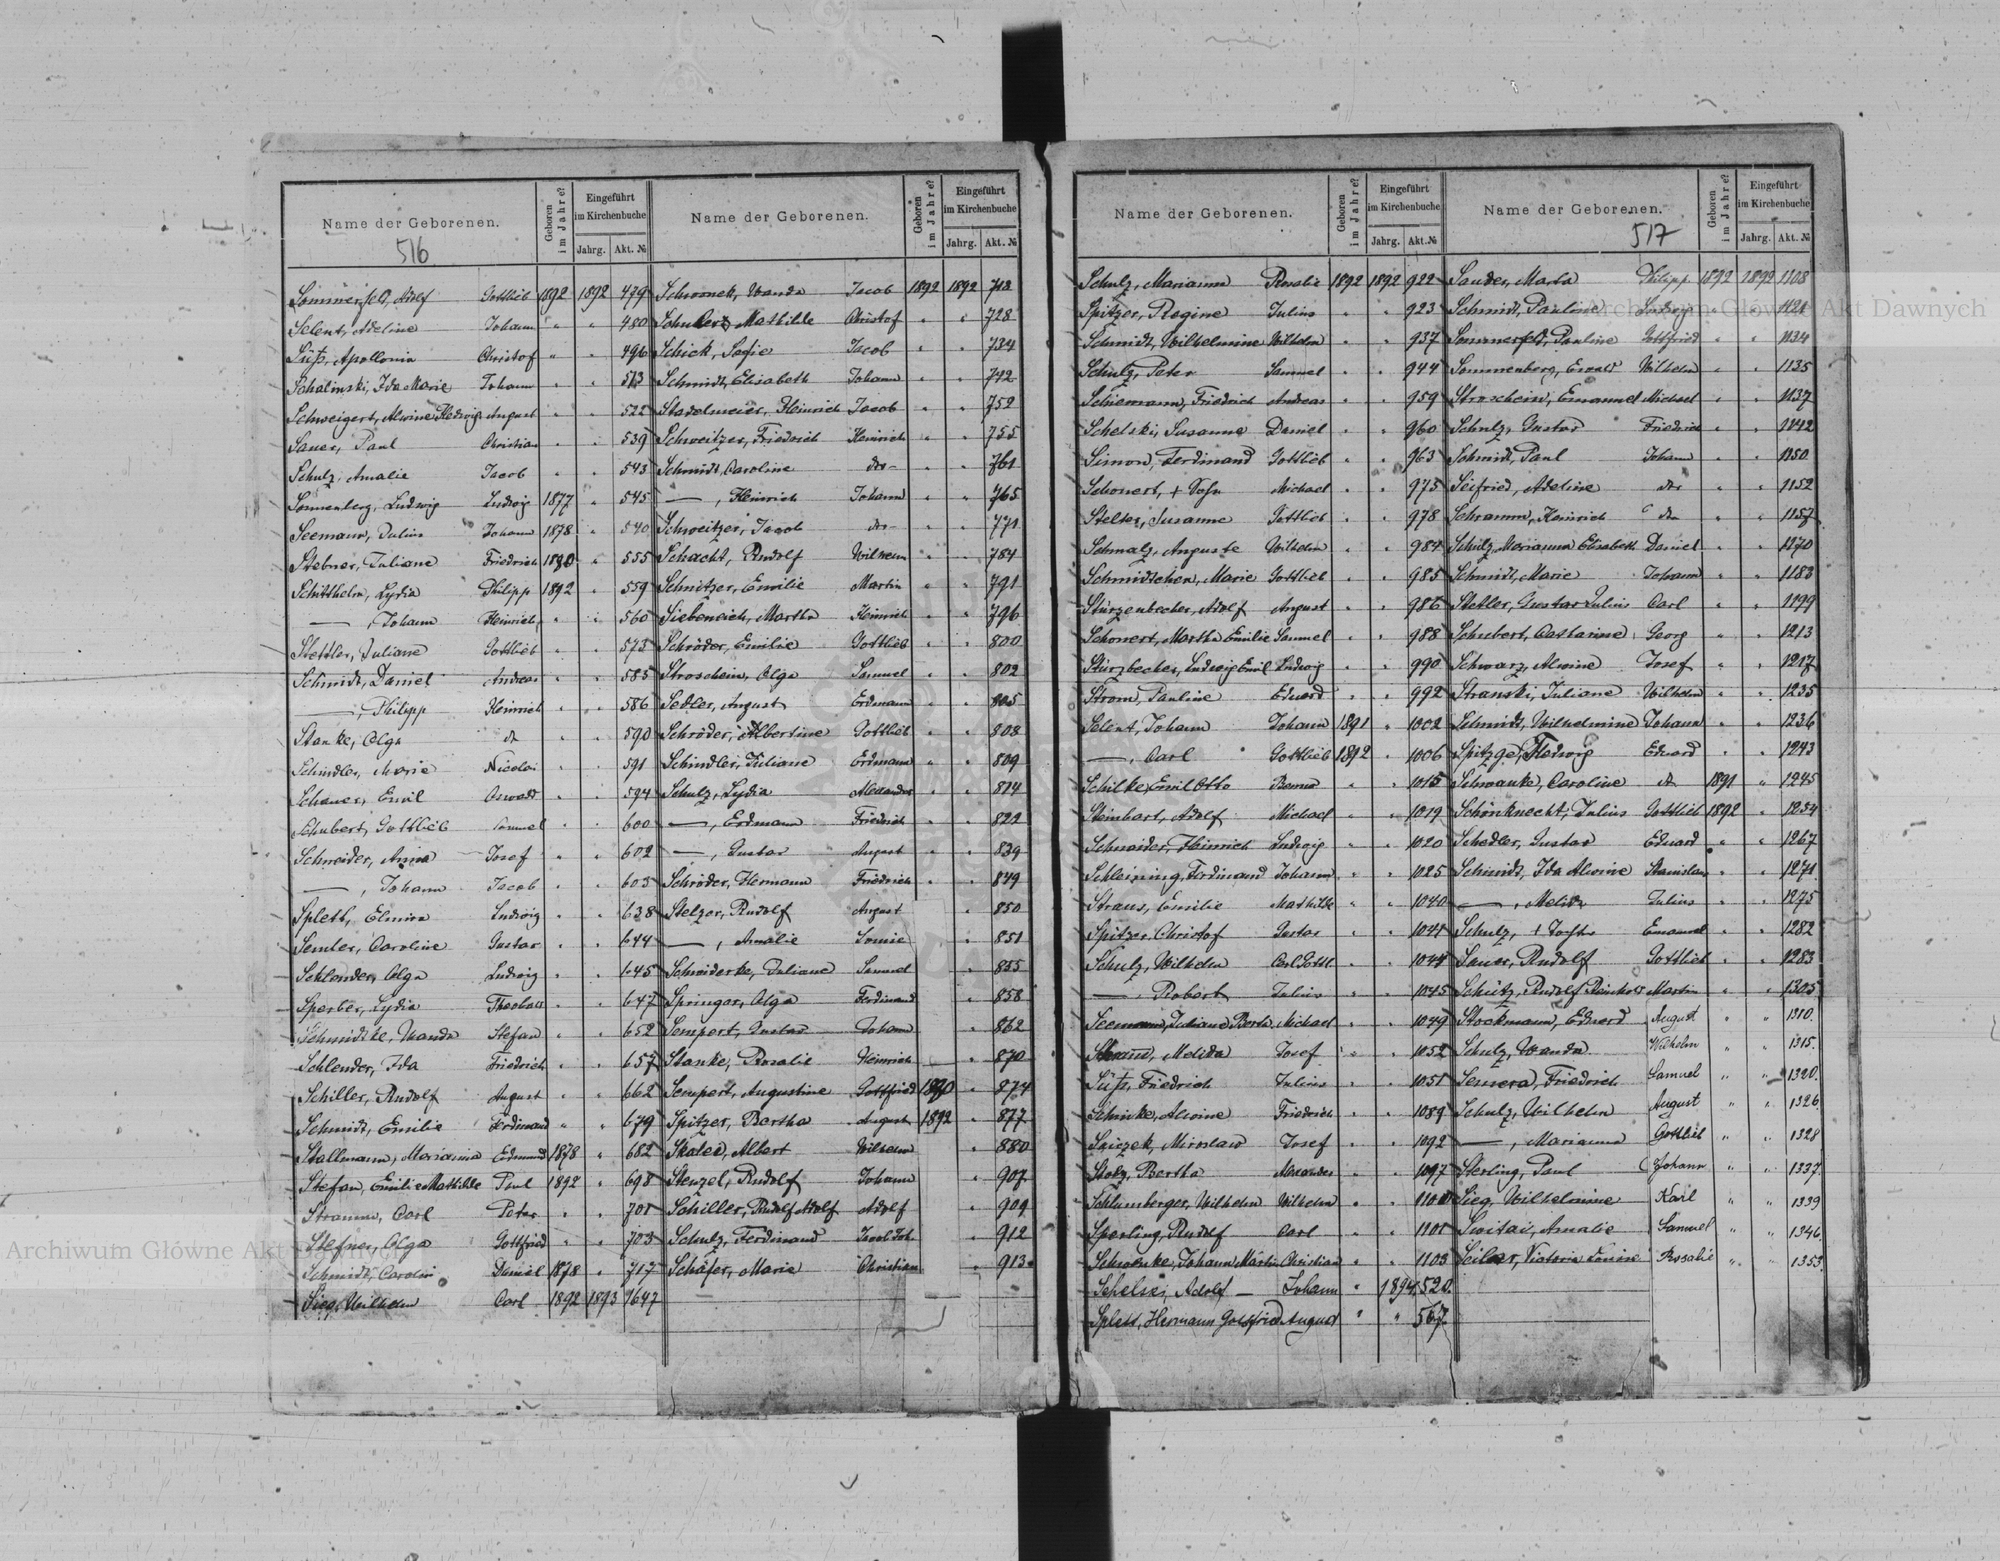 Name der Geborenen.
516
Geboren im Jahre?
Eingeführt im Kirchenbuche
Jahrg. Akt. №
Name der Geborenen.
Geboren im Jahre?
Eingeführt im Kirchenbuche
Jahrg. Akt. №
Sommerfeld, Adolf Gottlieb 1892 1892 479
Selent, Adeline Johann " " 480
Süß, Apollonia Christof " " 496
Schalinski, Ida Marie Johann " " 513
Schweigert, Alwine Hedwig August " " 522
Sauer, Paul Christian " " 539
Schulz, Amalie Jacob " " 543
Sonnenberg, Ludwig Ludwig 1877 " 545
Seemann, Julius Johann 1878 " 540
Stebner, Juliane Friedrich 1880 " 555
Schitthelm, Lydia Philipp 1892 " 559
—, Johann Heinrich " " 560
Stettler, Juliane Gottlieb " " 573
Schmidt, Daniel Andreas " " 585
—, Philipp Heinrich " " 586
Stanke, Olga " " 590
Schindler, Marie Nicolai " " 591
Schauer, Emil Oswald " " 594
Schubert, Gottlieb Samuel " " 600
Schneider, Anna Josef " " 602
—, Johann Jacob " " 603
Splett, Elmira Ludwig " " 638
Semler, Caroline Gustav " " 644
Schlender, Olga Ludwig " " 645
Sperber, Lydia Theobald " " 647
Schmidtke, Wanda Stefan " " 652
Schlender, Ida Friedrich " " 657
Schiller, Rudolf August " " 662
Schmidt, Emilie Ferdinand " " 679
Stallmann, Marianna Edmund 1878 " 682
Stefan, Emilie Mathilde Paul 1892 " 698
Stramm, Carl Peter " " 701
Stefner, Olga Gottfried " " 703
Schmidt, Carolin Daniel 1878 " 717
Sieg, Wilhelm Carl 1892 1893 1647
Schwonek, Wanda Jacob 1892 1892 712
Schubert, Mathilde Christof " " 728
Schick, Sofie Jacob " " 734
Schmidt, Elisabeth Johann " " 742
Stadelmeier, Heinrich Jacob " " 752
Schweitzer, Friedrich Heinrich " " 755
Schmidt, Caroline dto " " 761
—, Heinrich Johann " " 765
Schweitzer, Jacob dto " " 771
Schacht, Rudolf Wilhelm " " 784
Schnitzer, Emilie Martin " " 791
Siebeneich, Martha Heinrich " " 796
Schröder, Emilie Gottlieb " " 800
Stroschein, Olga Samuel " " 802
Sedler, August Erdmann " " 805
Schröder, Albertine Gottlieb " " 808
Schindler, Juliane Erdmann " " 809
Schulz, Lydia Alexander " " 814
—, Erdmann Friedrich " " 822
—, Gustav August " " 839
Schröder, Hermann Friedrich " " 849
Stelzer, Rudolf August " 850
—, Amalie " 851
Schneiderke, Juliane Samuel " 855
Springer, Olga Ferdinand " 858
Sempert, Gustav Johann " 862
Stanke, Rosalie Heinrich " 870
Sempert, Augustine Gottfried 1890 " 874
Spitzer, Bertha August 1892 " 877
Albert Wilhelm " 880
Stenzel, Rudolf Johann " 907
Schiller, Rudolf Adolf Adolf " 909
Schulz, Ferdinand Jacob Joh. " 912
Schäfer, Marie Christian " 913
Name der Geborenen.
Geboren im Jahre?
Eingeführt im Kirchenbuche
Jahrg. Akt. №
Name der Geborenen.
517
Geboren im Jahre?
Eingeführt im Kirchenbuche
Jahrg. Akt. №
Schulz, Marianna Rosalie 1892 1892 922
Spitzer, Regine Julius " " 923
Schmidt, Wilhelmine Wilhelm " " 937
Schulz, Peter Samuel " " 944
Schiemann, Friedrich Andreas " " 959
Schelski, Susanne Daniel " " 960
Simon, Ferdinand Gottlieb " " 963
Schonert, + Sohn Michael " " 975
Stelter, Susanne Gottlieb " " 978
Schmalz, Auguste Wilhelm " " 984
Schmidtchen, Marie Gottlieb " " 985
Stürzenbecher, Adolf August " " 986
Schonert, Martha Emilie Samuel " " 988
Stürzbecher, Ludwig Emil Ludwig " " 990
Strom, Pauline Eduard " " 992
Selent, Johann Johann 1891 " 1002
—, Carl Gottlieb 1892 " 1006
Schilke, Emil Otto " " 1015
Steinhart, Adolf Michael " " 1019
Schneider, Heinrich Ludwig " " 1020
Schleining, Ferdinand Johann " " 1025
Straus, Emilie Mathilde " " 1040
Spitzer, Christof Gustav " " 1041
Schulz, Wilhelm Carl Gottl. " " 1044
—, Robert Julius " " 1045
Seemann, Juliane Berta Michael " " 1049
Melida Josef " " 1052
Süß, Friedrich Julius " " 1051
Schinke, Alwine Friedrich " " 1089
Saiczek, Miroslaw Josef " " 1092
Stolz, Bertha Alexander " " 1097
Schlumberger, Wilhelm Wilhelm " " 1100
Sperling, Rudolf Carl " " 1101
Schwonke, Johann Martin Christian " " 1103
Schelski, Adolf — Johann " 1894 520.
Splett, Hermann Gottfried August " " 567
Sander, Marta Philipp 1892 1892 1108
Schmidt, Pauline Ludwig " " 1121
Sommerfeld, Pauline Gottfried " " 1134
Sonnenberg, Ewald Wilhelm " " 1135
Stroschein, Emanuel Michael " " 1137
Schulz, Gustav Friedrich " " 1142
Schmidt, Paul Johann " " 1150
Seifried, Adeline dto " " 1152
Schramm, Heinrich dto " " 1157
Schulz, Marianna Elisabeth Daniel " " 1270
Schmidt, Marie Johann " " 1183
Stetler, Gustav Julius Carl " " 1199
Schubert, Catharine Georg " " 1213
Schwarz, Alwine Josef " " 1217
Stranski, Juliane Wilhelm " " 1235
Schmidt, Wilhelmine Johann " " 1236
Hedwig Eduard " " 1243
Schwanke, Caroline dto 1891 " 1245
Schönknecht, Julius Gottlieb 1892 " 1254
Schedler, Gustav Eduard " " 1267
Schmidt, Ida Alwine Stanislaus " " 1271
—, Melida Julius " " 1275
Schulz, + Tochter Emanuel " " 1282
Sauer, Rudolf Gottlieb " " 1283
Schütz, Rudolf Reinhold Martin " " 1305
Stockmann, Eduard August " " 1310.
Schulz, Wanda Wilhelm " " 1315.
Friedrich Samuel " " 1320.
Schulz, Wilhelm August " " 1326
—, Marianna Gottlieb " " 1328
Sterling, Paul Johann " " 1337
Sieg, Wilhelmine Karl " " 1339
Switai, Amalie Samuel " " 1346.
Seiler, Victoria Louise Rosalie " " 1353.
Archiwum Główne Akt Dawnych
Archiwum Główne Akt